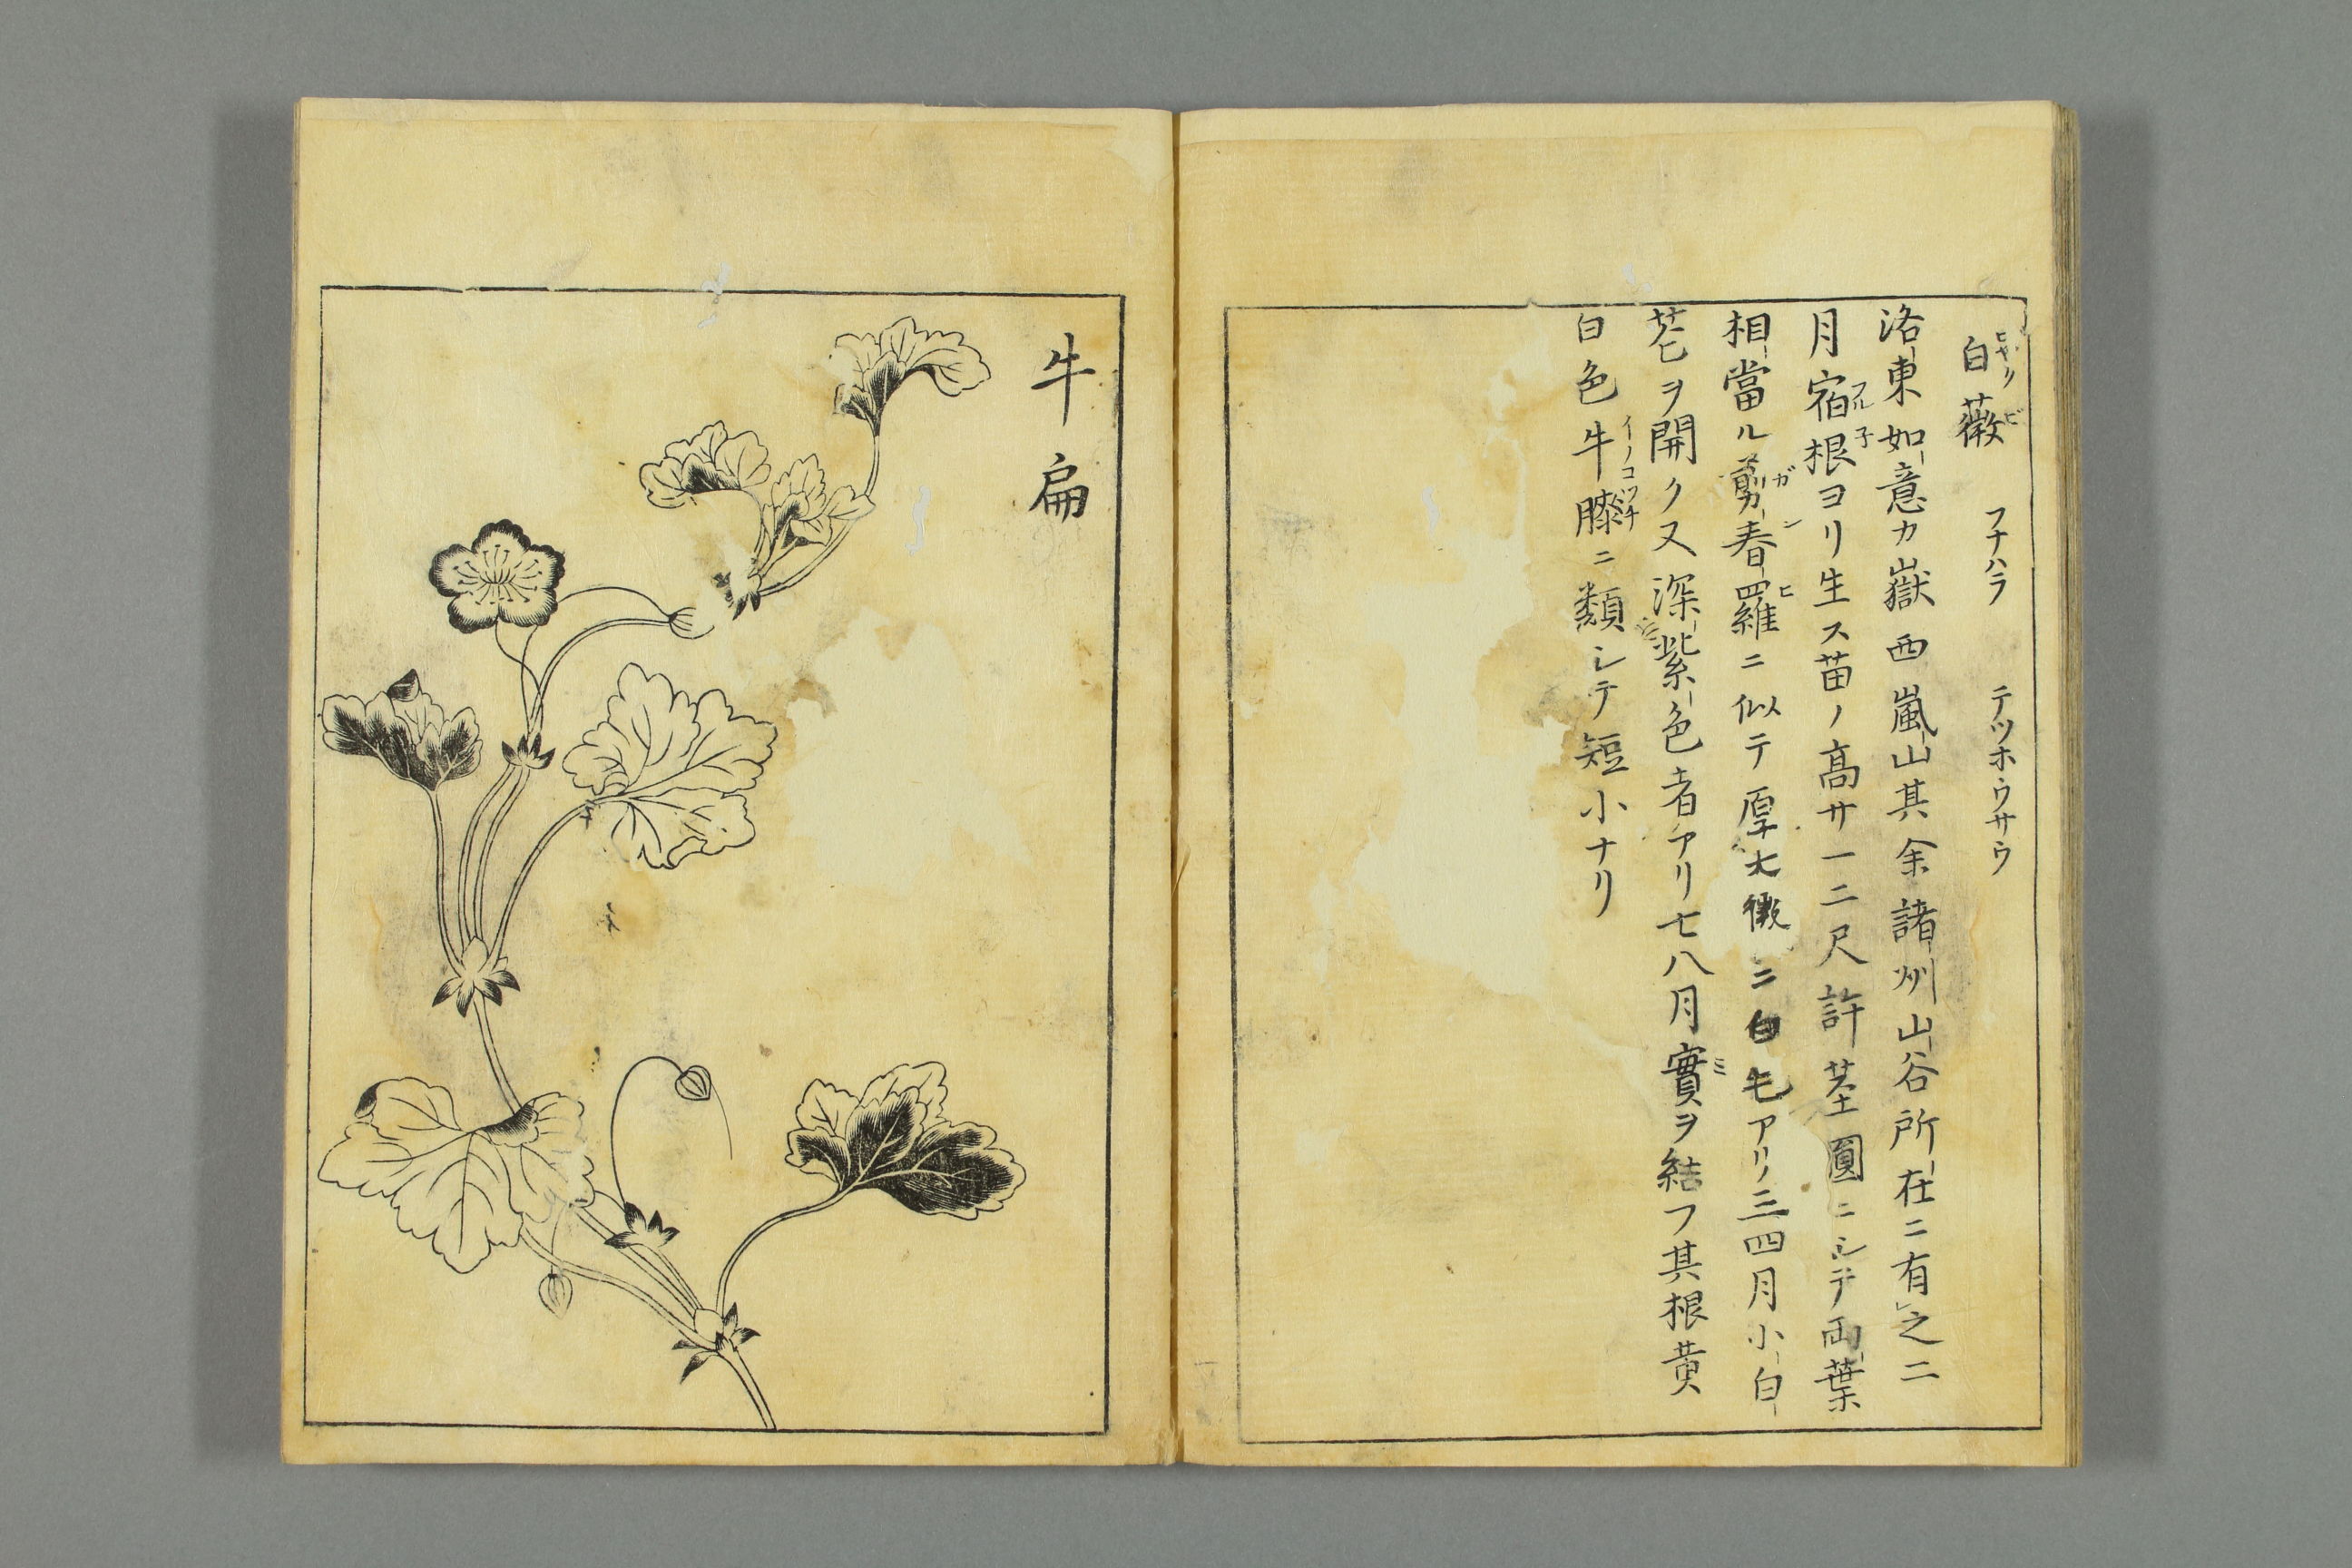 白薇 フナハラ テツホウサウ
洛東如意カ嶽西嵐山其余諸州山谷所在ニ有之二
月宿根ヨリ生ス苗ノ高サ一二尺許茎圓ニシテ両葉
相當ル剪春羅ニ似テ厚大微ニ白毛アリ三四月小白
花ヲ開ク又深紫色者アリ七八月實ヲ結フ其根黄
白色牛膝ニ類シテ短小ナリ
牛扁